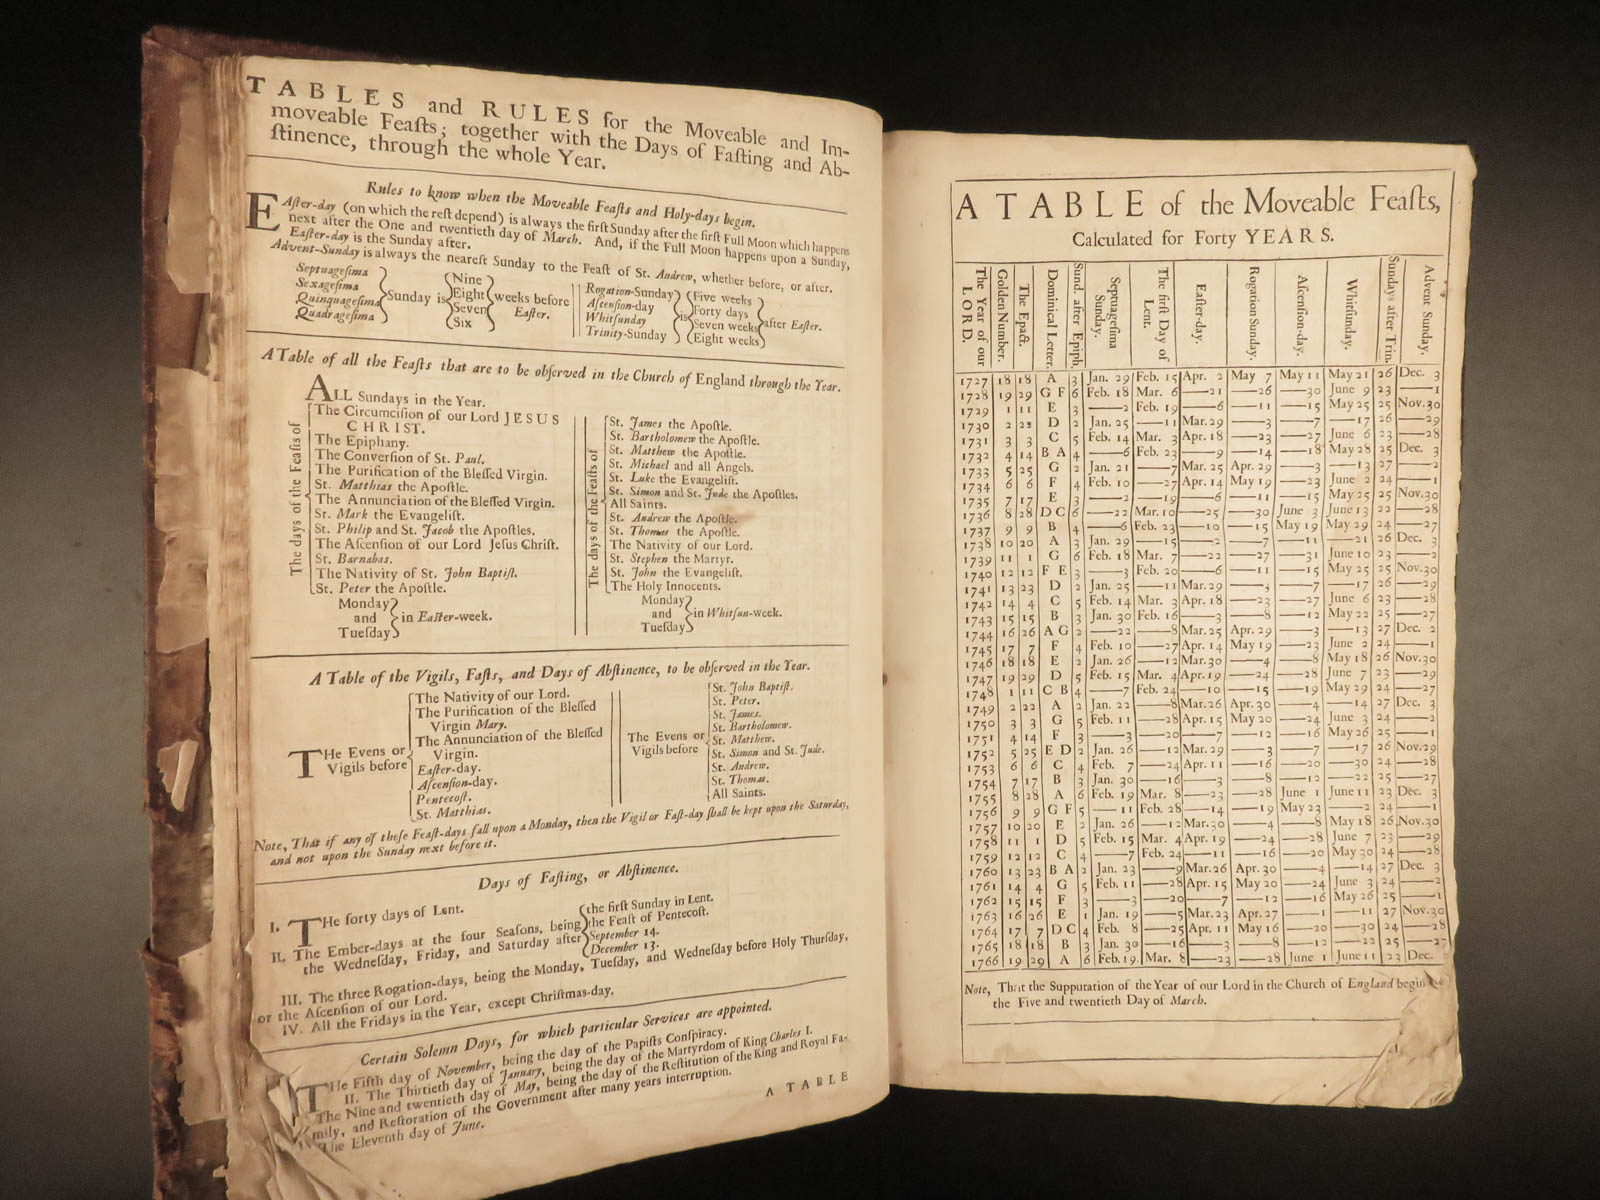 TABLES and RULES for the Moveable and Im-
moveable Feaſts; together with the Days of Faſting and Ab-
ſtinence, through the whole Year.
Rules to know when the Moveable Feaſts and Holy-days begin.
EAſter-day (on which the reſt depend) is always the firſt Sunday after the firſt Full Moon which happens
next after the One and twentieth day of March. And, if the Full Moon happens upon a Sunday,
Eaſter-day is the Sunday after.
Advent-Sunday is always the neareſt Sunday to the Feaſt of St. Andrew, whether before, or after.
Septuageſima
Sexageſima
Quinquageſima
Quadrageſima
Sunday is
Nine
Eight
Seven
Six
weeks before
Eaſter.
Rogation-Sunday
Aſcenſion-day
Whitſunday
Trinity-Sunday
is
Five weeks
Forty days
Seven weeks
Eight weeks
after Eaſter.
A Table of all the Feaſts that are to be obſerved in the Church of England through the Year.
ALL Sundays in the Year.
The days of the Feaſts of
The Circumciſion of our Lord JESUS
CHRIST.
The Epiphany.
The Converſion of St. Paul.
The Purification of the Bleſſed Virgin.
St. Matthias the Apoſtle.
The Annunciation of the Bleſſed Virgin.
St. Mark the Evangeliſt.
St. Philip and St. Jacob the Apoſtles.
The Aſcenſion of our Lord Jeſus Chriſt.
St. Barnabas.
The Nativity of St. John Baptiſt.
St. Peter the Apoſtle.
Monday
and
Tueſday
in Eaſter-week.
The days of the Feaſts of
St. James the Apoſtle.
St. Bartholomew the Apoſtle.
St. Matthew the Apoſtle.
St. Michael and all Angels.
St. Luke the Evangeliſt.
St. Simon and St. Jude the Apoſtles.
All Saints.
St. Andrew the Apoſtle.
St. Thomas the Apoſtle.
The Nativity of our Lord.
St. Stephen the Martyr.
St. John the Evangeliſt.
The Holy Innocents.
Monday
and
Tueſday
in Whitſun-week.
A Table of the Vigils, Faſts, and Days of Abſtinence, to be obſerved in the Year.
THe Evens or
Vigils before
The Nativity of our Lord.
The Purification of the Bleſſed
Virgin Mary.
The Annunciation of the Bleſſed
Virgin.
Eaſter-day.
Aſcenſion-day.
Pentecoſt.
St. Matthias.
The Evens or
Vigils before
St. John Baptiſt.
St. Peter.
St. James.
St. Bartholomew.
St. Matthew.
St. Simon and St. Jude.
St. Andrew.
St. Thomas.
All Saints.
Note, That if any of theſe Feaſt-days fall upon a Monday, then the Vigil or Faſt-day ſhall be kept upon the Saturday,
and not upon the Sunday next before it.
Days of Faſting, or Abſtinence.
I. THe forty days of Lent.
II. The Ember-days at the four Seaſons, being
the Wedneſday, Friday, and Saturday after
the firſt Sunday in Lent.
the Feaſt of Pentecoſt.
September 14.
December 13.
III. The three Rogation-days, being the Monday, Tueſday, and Wedneſday before Holy Thurſday,
or the Aſcenſion of our Lord.
IV. All the Fridays in the Year, except Chriſtmas-day.
Certain Solemn Days, for which particular Services are appointed.
THe Fifth day of November, being the day of the Papiſts Conſpiracy.
II. The Thirtieth day of January, being the day of the Martyrdom of King Charles I.
The Nine and twentieth day of May, being the day of the Reſtitution of the King and Royal Fa-
mily, and Reſtoration of the Government after many years interruption.
The Eleventh day of June.
A TABLE
A TABLE of the Moveable Feaſts,
Calculated for Forty YEARS.
The Year of our LORD.
Golden Number.
The Epact.
Dominical Letter.
Sund. after Epiph.
Septuageſima Sunday.
The firſt Day of Lent.
Eaſter-day.
Rogation Sunday.
Aſcenſion-day.
Whitſunday.
Sundays after Trin.
Advent Sunday.
1727 18 18 A 3 Jan. 29 Feb. 15 Apr. 2 May 7 May 11 May 21 26 Dec. 3
1728 19 29 G F 6 Feb. 18 Mar. 6 —21 —26 —30 June 9 23 —1
1729 1 11 E 3 —2 Feb. 19 —6 —11 —15 May 25 25 Nov. 30
1730 2 22 D 2 Jan. 25 —11 Mar. 29 —3 —7 —17 26 —29
1731 3 3 C 5 Feb. 14 Mar. 3 Apr. 18 —23 —27 June 6 23 —28
1732 4 14 B A 4 —6 Feb. 23 —9 —14 —18 May 28 25 Dec. 3
1733 5 25 G 2 Jan. 21 —7 Mar. 25 Apr. 29 —3 —13 27 —2
1734 6 6 F 4 Feb. 10 —27 Apr. 14 May 19 —23 June 2 24 —1
1735 7 17 E 3 —2 —19 —6 —11 —15 May 25 25 Nov. 30
1736 8 28 D C 6 —22 Mar. 10 —25 —30 June 3 June 13 22 —28
1737 9 9 B 4 —6 Feb. 23 —10 —15 May 19 May 29 24 —27
1738 10 20 A 3 Jan. 29 —15 —2 —7 —11 —21 26 Dec. 3
1739 11 1 G 6 Feb. 18 Mar. 7 —22 —27 —31 June 10 23 —2
1740 12 12 F E 3 —3 Feb. 20 —6 —11 —15 May 25 25 Nov. 30
1741 13 23 D 2 Jan. 25 —11 Mar. 29 —3 —7 —17 26 —29
1742 14 4 C 5 Feb. 14 Mar. 3 Apr. 18 —23 —27 June 6 23 —28
1743 15 15 B 3 Jan. 30 Feb. 16 —3 —8 —12 May 22 25 —27
1744 16 26 A G 2 —22 —8 Mar. 25 Apr. 29 —3 —13 27 Dec. 2
1745 17 7 F 4 Feb. 10 —27 Apr. 14 May 19 —23 June 2 24 —1
1746 18 18 E 2 Jan. 26 —12 Mar. 30 —4 —8 May 18 26 Nov. 30
1747 19 29 D 5 Feb. 15 Mar. 4 Apr. 19 —24 —28 June 7 23 —29
1748 1 11 C B 4 —7 Feb. 24 —10 —15 —19 May 29 24 —27
1749 2 22 A 2 Jan. 22 —8 Mar. 26 Apr. 30 —4 —14 27 Dec. 3
1750 3 3 G 5 Feb. 11 —28 Apr. 15 May 20 —24 June 3 24 —2
1751 4 14 F 3 —3 —20 —7 —12 —16 May 26 25 —1
1752 5 25 E D 2 Jan. 26 —12 Mar. 29 —3 —7 —17 26 Nov. 29
1753 6 6 C 4 Feb. 7 —24 Apr. 11 —16 —20 —30 24 —28
1754 7 17 B 3 Jan. 30 —16 —3 —8 —12 —22 25 —27
1755 8 28 A 6 Feb. 19 Mar. 8 —23 —28 June 1 June 11 23 Dec. 3
1756 9 9 G F 5 —11 Feb. 28 —14 —19 May 23 —2 24 —1
1757 10 20 E 2 Jan. 26 —12 Mar. 30 —4 —8 May 18 26 Nov. 30
1758 11 1 D 5 Feb. 15 Mar. 4 Apr. 19 —24 —28 June 7 23 —29
1759 12 12 C 4 —7 Feb. 24 —11 —16 —20 May 30 24 —28
1760 13 23 B A 2 Jan. 23 —9 Mar. 26 Apr. 30 —4 —14 27 Dec. 3
1761 14 4 G 5 Feb. 11 —28 Apr. 15 May 20 —24 June 3 24 —2
1762 15 15 F 3 —3 —20 —7 —12 —16 May 26 25 —1
1763 16 26 E 1 Jan. 19 —5 Mar. 23 Apr. 27 —1 —11 27 Nov. 30
1764 17 7 D C 4 Feb. 8 —25 Apr. 11 May 16 —20 —30 24 —28
1765 18 18 B 3 Jan. 30 —16 —3 —8 —12 —22 25 —27
1766 19 29 A 6 Feb. 19. Mar. 8 —23 —28 June 1 June 11 23 Dec.
Note, That the Supputation of the Year of our Lord in the Church of England begin
the Five and twentieth Day of March.